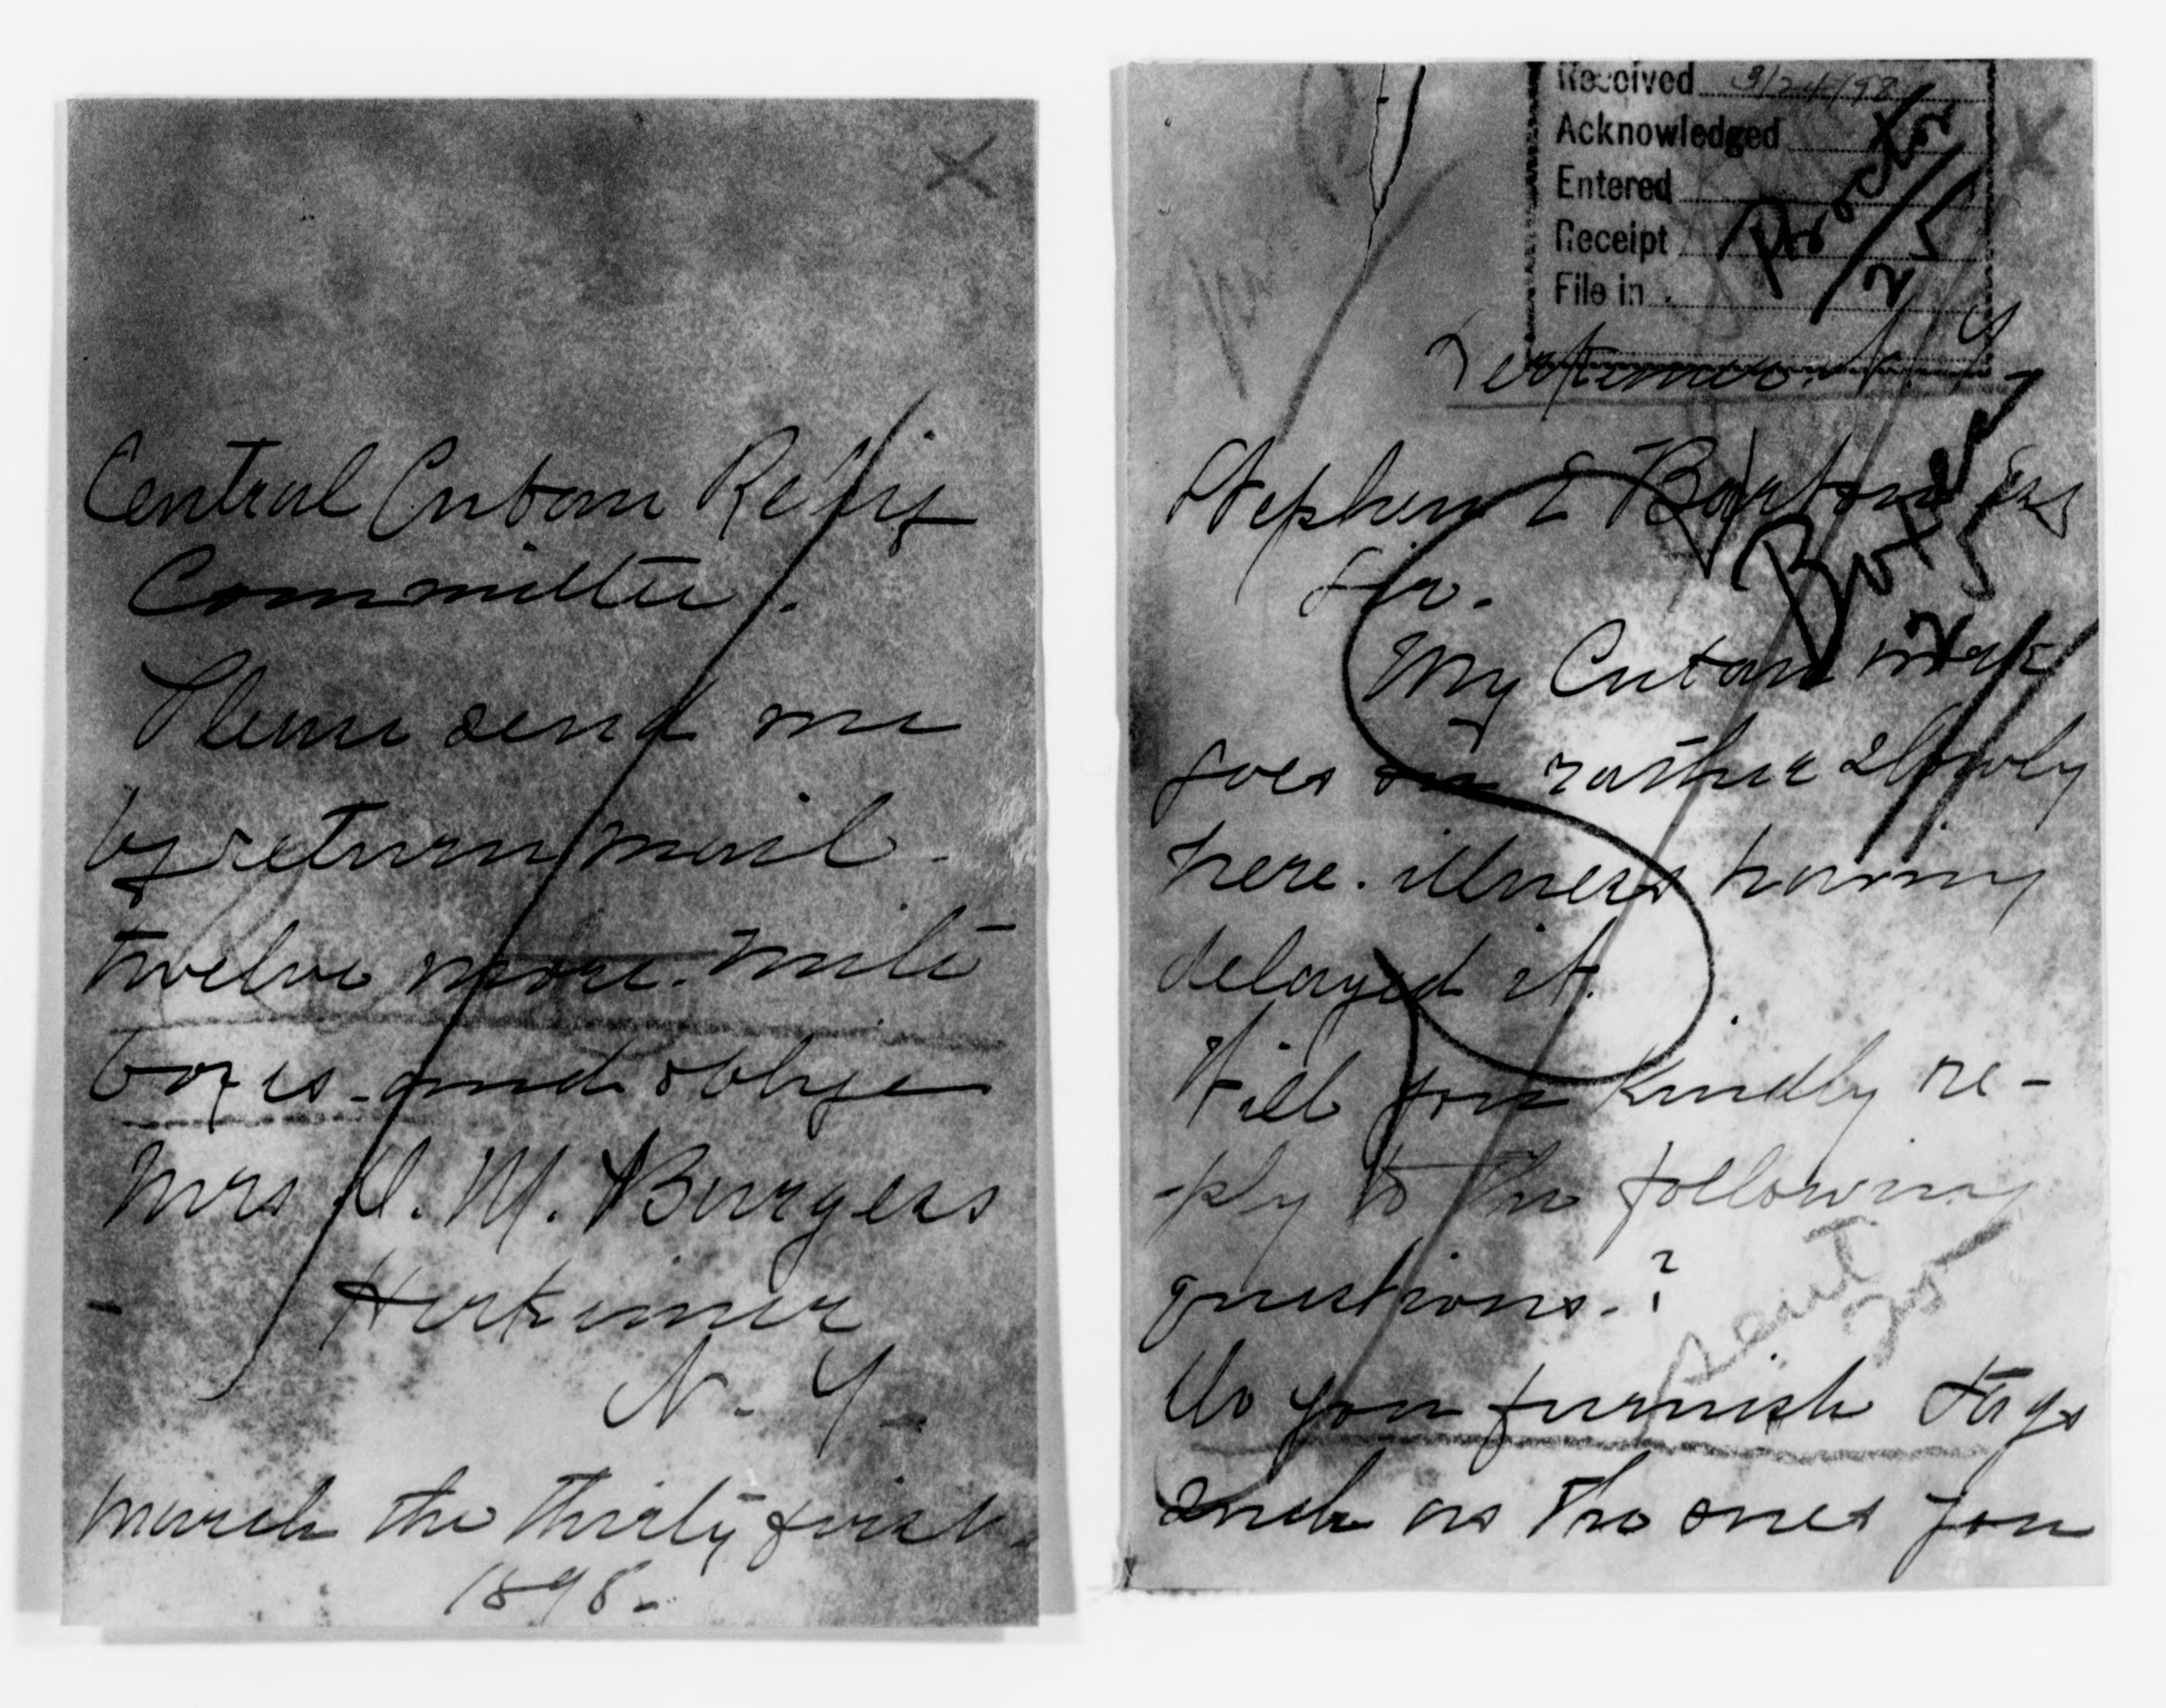 Central Cuban Relief
Committee.
Please send me
by return mail -
twelve more. mite
boxes - and oblige
Mrs D. M. Burgess
Herkimer
N. Y.
March the thirty first.
1898 -
Received 3/24/98
Acknowledged
Entered
Receipt
File in
Herkimer. N Y
Stephen E Barton Esq
Sir.
My Cuban work
goes on rather slowly
here. illness having
delayed it.
Will you kindly re-
-ply to the following
questions. ?
sent
25
Do you furnish tags
such as the ones you